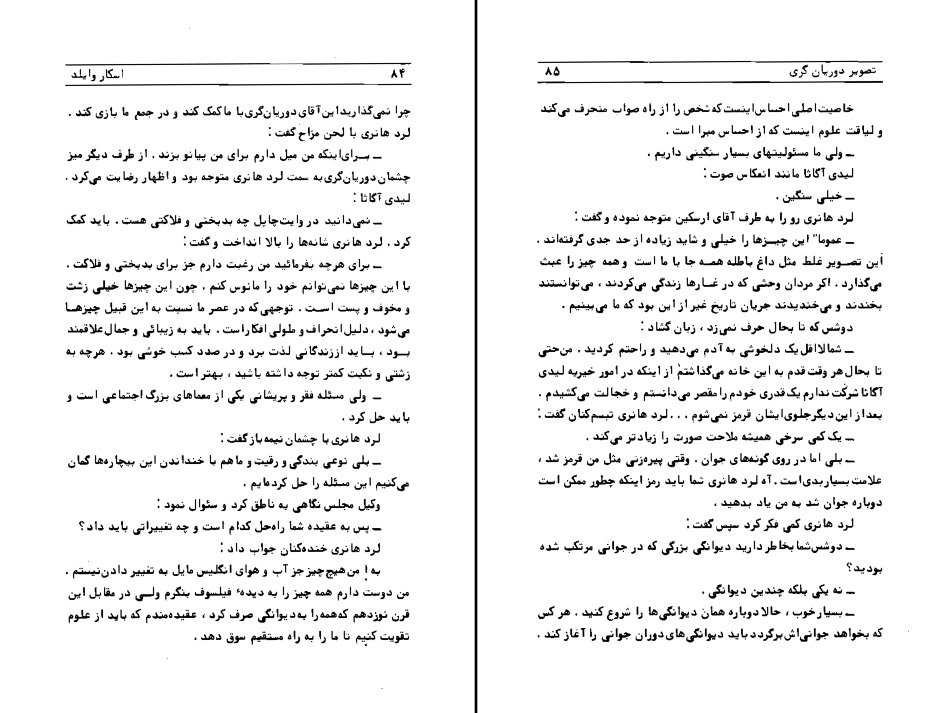 ۸۴ اسکار وایلد
چرا نمی‌گذارید این آقای دوریان‌گری با ما کمک کند و در جمع ما بازی کند .
لرد هانری با لحن مزاح گفت :
ــ برای اینکه من میل دارم برای من پیانو بزند . از طرف دیگر میز
چشمان دوریان‌گری به سمت لرد هانری متوجه بود و اظهار رضایت می‌کرد .
لیدی آگاتا :
ــ نمی‌دانید در وایت‌چاپل چه بدبختی و فلاکتی هست . باید کمک
کرد . لرد هانری شانه‌ها را بالا انداخت و گفت :
ــ برای هرچه بفرمائید من رغبت دارم جز برای بدبختی و فلاکت .
با این چیزها نمی‌توانم خود را مانوس کنم . چون این چیزها خیلی زشت
و مخوف و پست است . توجهی که در عصر ما نسبت به این قبیل چیزها
می‌شود ، دلیل انحراف و طولی افکار است . باید به زیبائی و جمال علاقمند
بود ، باید از زندگانی لذت برد و در صدد کسب خوشی بود . هرچه به
زشتی و نکبت کمتر توجه داشته باشید ، بهتر است .
ــ ولی مسئله فقر و پریشانی یکی از معماهای بزرگ اجتماعی است و
باید حل کرد .
لرد هانری با چشمان نیمه‌باز گفت :
ــ بلی نوعی بندگی و رقیت و ما هم با خنداندن این بیچاره‌ها گمان
می‌کنیم این مسئله را حل کرده‌ایم .
وکیل مجلس نگاهی به ناطق کرد و سئوال نمود :
ــ پس به عقیده شما راه‌حل کدام است و چه تغییراتی باید داد؟
لرد هانری خنده‌کنان جواب داد :
به ! من هیچ چیز جز آب و هوای انگلیس مایل به تغییر دادن نیستم .
من دوست دارم همه چیز را به دیدهٔ فیلسوف بنگرم ولی در مقابل این
قرن نوزدهم که همه را به دیوانگی صرف کرد ، عقیده‌مندم که باید از علوم
تقویت کنیم تا ما را به راه مستقیم سوق دهد .
تصویر دوریان گری ۸۵
خاصیت اصلی احساس اینست که شخص را از راه صواب منحرف می‌کند
و لیاقت علوم اینست که از احساس مبرا است .
ــ ولی ما مسئولیتهای بسیار سنگینی داریم .
لیدی آگاتا مانند انعکاس صوت :
ــ خیلی سنگین .
لرد هانری رو را به طرف آقای ارسکین متوجه نموده و گفت :
ــ عموما" این چیزها را خیلی و شاید زیاده از حد جدی گرفته‌اند .
این تصویر غلط مثل داغ باطله همه جا با ما است و همه چیز را عبث
می‌گذارد . اکر مردان وحشی که در غارها زندگی می‌کردند ، می‌توانستند
بخندند و می‌خندیدند جریان تاریخ غیر از این بود که ما می‌بینیم .
دوشس که تا بحال حرف نمی‌زد ، زبان گشاد :
ــ شما لااقل یک دلخوشی به آدم می‌دهید و راحتم کردید . من حتی
تا بحال هر وقت قدم به این خانه می‌گذاشتم از اینکه در امور خیریه لیدی
آگاتا شرکت ندارم یک قدری خودم را مقصر می‌دانستم و خجالت می‌کشیدم .
بعد از این دیگر جلوی ایشان قرمز نمی‌شوم . . . لرد هانری تبسم‌کنان گفت :
ــ یک کمی سرخی همیشه ملاحت صورت را زیادتر می‌کند .
ــ بلی اما در روی گونه‌های جوان . وقتی پیره‌زنی مثل من قرمز شد ،
علامت بسیار بدی است . آه لرد هانری شما باید رمز اینکه چطور ممکن است
دوباره جوان شد به من یاد بدهید .
لرد هانری کمی فکر کرد سپس گفت :
ــ دوشس شما بخاطر دارید دیوانگی بزرگی که در جوانی مرتکب شده
بودید؟
ــ نه یکی بلکه چندین دیوانگی .
ــ بسیار خوب ، حالا دوباره همان دیوانگی‌ها را شروع کنید . هر کس
که بخواهد جوانی‌اش برگردد باید دیوانگی‌های دوران جوانی را آغاز کند .